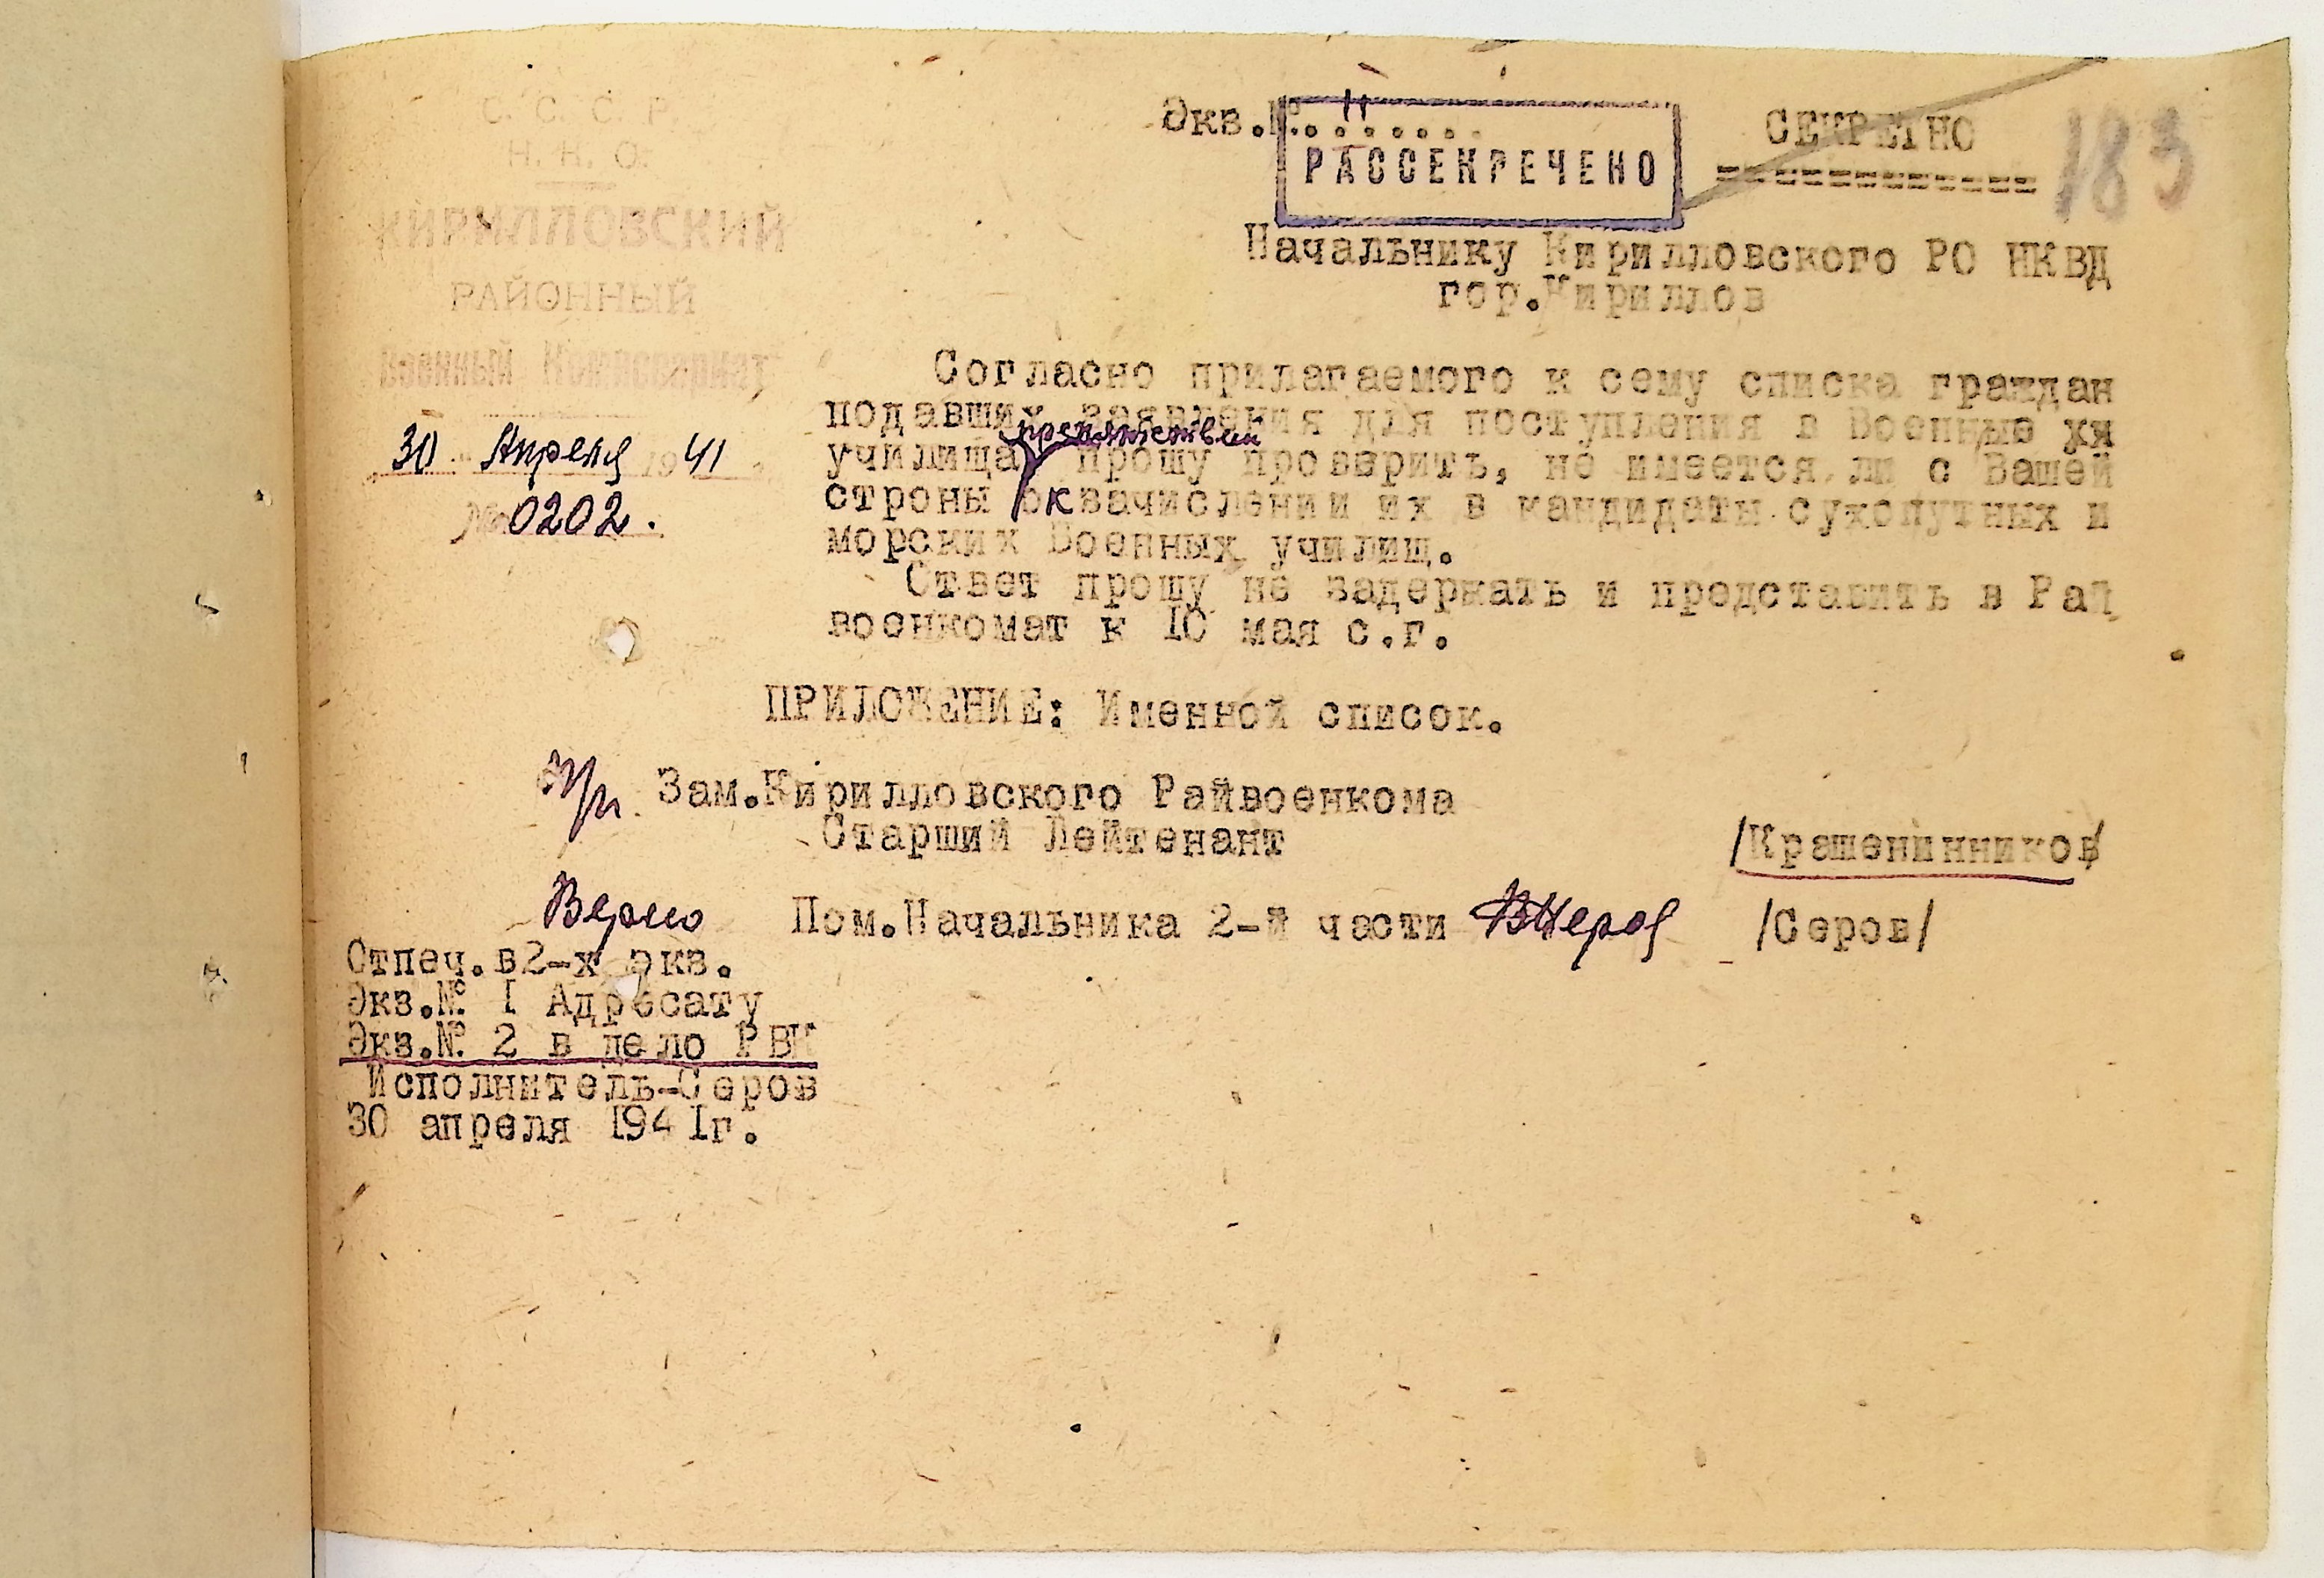 С. С. С. Р.
Н. К. О.
КИРИЛЛОВСКИЙ
РАЙОННЫЙ
Военный Комиссариат
30 Апреля 1941
№ 0202.
Экз.№...11......
РАССЕКРЕЧЕНО
СЕКРЕТНО
=============
183
Начальнику Кирилловского РО НКВД
гор.Кириллов
Согласно прилагаемого к сему списка граждан
подавший заявления для поступления в Военные хи
препятствий
училища прошу проверить, не имеется ли с Вашей
строны к зачислении их в кандидаты сухопутных и
морских Военных училищ.
Ответ прошу не задержать и представить в Рай
военкомат к 10 мая с.г.
ПРИЛОЖЕНИЕ: Именной список.
п/п. Зам.Кирилловского Райвоенкома
Старший Лейтенант /Крашенинников/
Верно Пом.Начальника 2-й части /Серов/
Отпеч.в2-х экз.
Экз.№ I Адресату
Экз.№ 2 в дело РВК
Исполнитель-Серов
30 апреля 1941г.